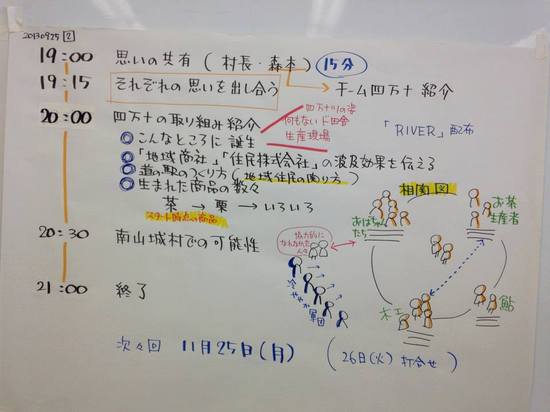 20130925 2
19:00 思いの共有（村長・森本）15分
19:15 それぞれの思いを出し合う チーム四万十 紹介
20:00 四万十の取り組み紹介
四万十川の姿
何もないド田舎
生産現場
「RIVER」配布
こんなところに誕生
「地域商社」「住民株式会社」の波及効果を伝える
道の駅のつくり方（地域住民の関り方）
生まれた商品の数々
茶 → 栗 → いろいろ
スタート時点の商品
相関図
おばちゃんたち
お茶生産者
協力的になれなかった人々
冷ややか軍団
木工
鮎
20:30 南山城村での可能性
21:00 終了
次々回 11月25日(月)
(26日(火) 打合せ)